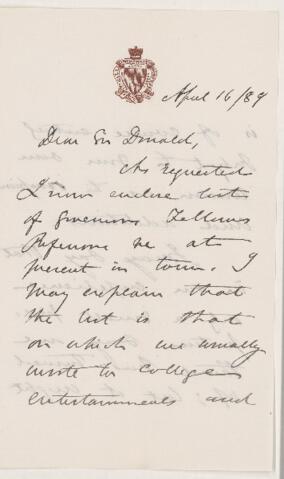 April 16/89
Dear Sir Donald,
As requested
I now enclose list
of Governors Fellows
Professors &c at
present in town. I
may explain that
the list is that
on which we usually
invite to College
entertainments and